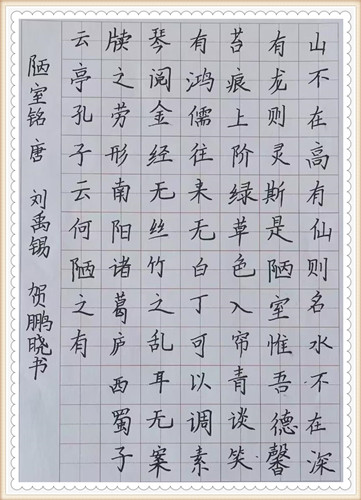 山不在高有仙则名水不在深
有龙则灵斯是陋室惟吾德馨
苔痕上阶绿草色入帘青谈笑
有鸿儒往来无白丁可以调素
琴阅金经无丝竹之乱耳无案
牍之劳形南阳诸葛庐西蜀子
云亭孔子云何陋之有
陋室铭 唐 刘禹锡 贺鹏晓书